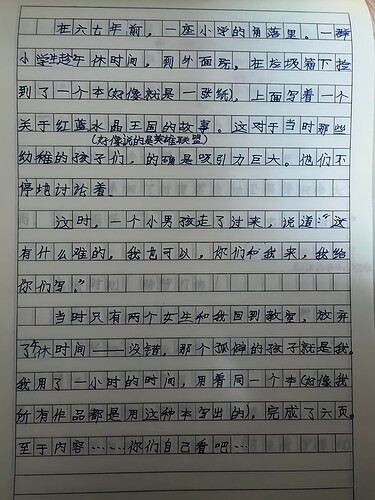 在六七年前，一座小学的角落里。一群
小学生趁午休时间，到外面玩，在垃圾箱下捡
到了一个本(好像就是一张纸)，上面写着一个
关于红蓝水晶王国的故事。这对于当时那些
(好像说的是英雄联盟)
幼稚的孩子们，的确是吸引力巨大。他们不
停地讨论着。
这时，一个小男孩走了过来，说道："这
有什么难的，我也可以，你们和我来，我给
你们写。"
当时只有两个女生和我回到教室，放弃
了午休时间——没错，那个孤僻的孩子就是我。
我用了一小时的时间，用着同一个本(好像我
所有作品都是用这种本写出的)，完成了六页。
至于内容……你们自己看吧…